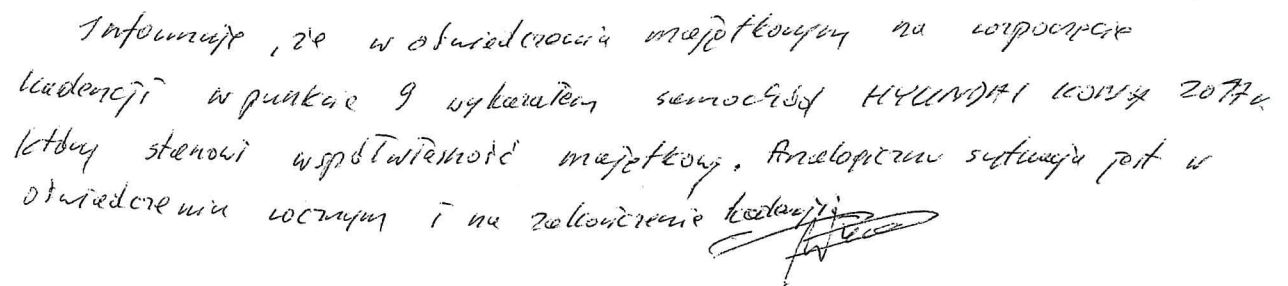 Informuję, że w oświadczeniu majątkowym na rozpoczęcie
kadencji w punkcie 9 wykazałem samochód HYUNDAI KONA 2017r.
który stanowi współwłasność majątkową. Analogiczna sytuacja jest w
oświadczeniu rocznym i na zakończenie kadencji